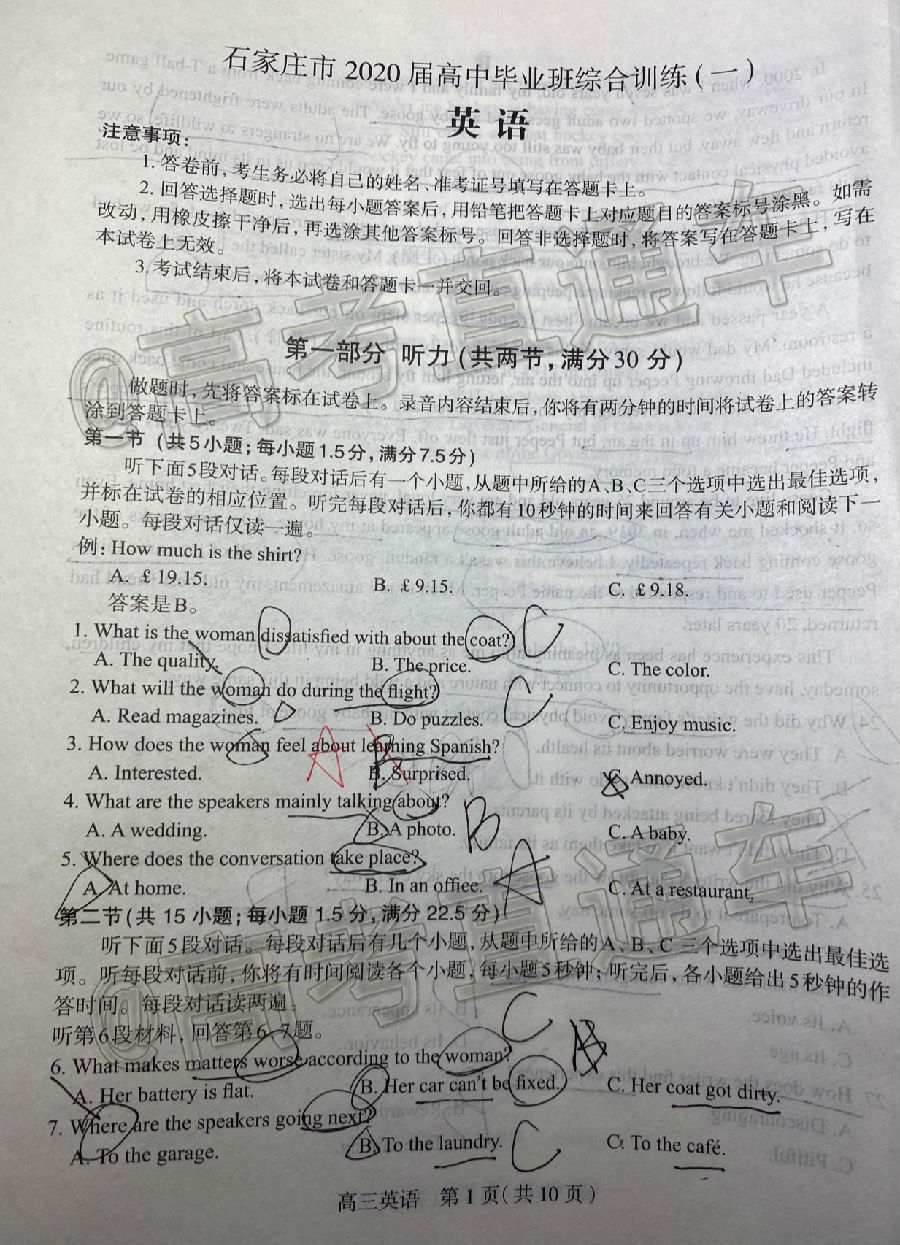 石家庄市 2020 届高中毕业班综合训练(一)
英 语
注意事项:
1. 答卷前,考生务必将自己的姓名、准考证号填写在答题卡上。
2. 回答选择题时,选出每小题答案后,用铅笔把答题卡上对应题目的答案标号涂黑。如需
改动,用橡皮擦干净后,再选涂其他答案标号。回答非选择题时,将答案写在答题卡上,写在
本试卷上无效。
3.考试结束后,将本试卷和答题卡一并交回。
@高考直通车
第一部分 听力(共两节,满分30 分)
做题时,先将答案标在试卷上。录音内容结束后,你将有两分钟的时间将试卷上的答案转
涂到答题卡上。
第一节 (共5小题;每小题1.5分,满分7.5分)
听下面5段对话。每段对话后有一个小题,从题中所给的A、B、C三个选项中选出最佳选项,
并标在试卷的相应位置。听完每段对话后,你都有10秒钟的时间来回答有关小题和阅读下一
小题。每段对话仅读一遍。
例: How much is the shirt?
A. £ 19.15. B. £ 9.15. C. £ 9.18.
答案是B。
1. What is the woman dissatisfied with about the coat? C
A. The quality. B. The price. C. The color.
2. What will the woman do during the flight? C
A. Read magazines. B. Do puzzles. C. Enjoy music.
3. How does the woman feel about learning Spanish?
A. Interested. A B. Surprised. C. Annoyed.
4. What are the speakers mainly talking about?
A. A wedding. B. A photo. B C. A baby.
5. Where does the conversation take place?
A. At home. B. In an office. A C. At a restaurant.
第二节(共 15 小题;每小题 1.5 分,满分 22.5 分)
听下面5段对话。每段对话后有几个小题,从题中所给的A、B、C 三个选项中选出最佳选
项。听每段对话前,你将有时间阅读各个小题,每小题5秒钟;听完后,各小题给出5秒钟的作
答时间。每段对话读两遍。
@高考直通车
听第6段材料,回答第6~7题。
6. What makes matters worse according to the woman? C
A. Her battery is flat. B. Her car can't be fixed. C. Her coat got dirty.
7. Where are the speakers going next?
A. To the garage. B. To the laundry. C C. To the café.
高三英语 第 1 页(共 10 页)